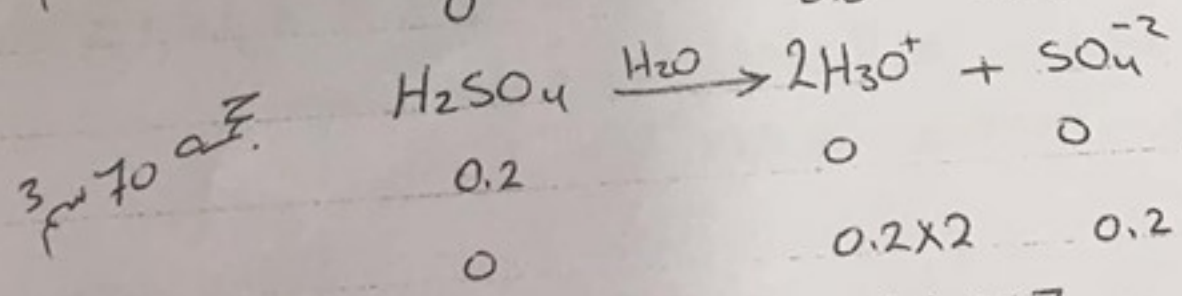 H₂SO₄ H₂O → 2H₃O⁺ + SO₄⁻²
70
0.2 0 0
0 0.2×2 0.2